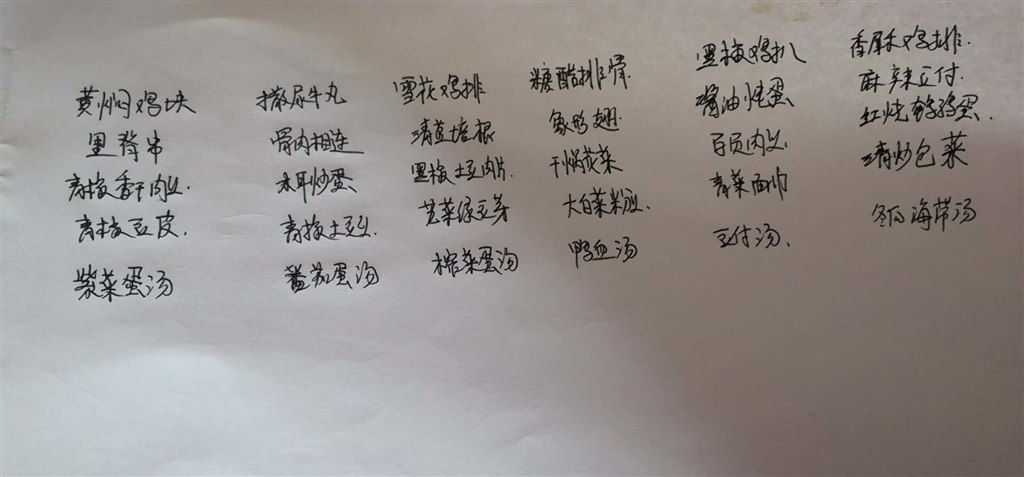 黄焖鸡块
里脊串
青椒香干肉丝.
青椒豆皮.
紫菜蛋汤
撒尿牛丸
骨肉相连
木耳炒蛋
青椒土豆丝
番茄蛋汤
雪花鸡排
清蒸培根
黑椒土豆肉片.
芹菜绿豆芽
榨菜蛋汤
糖醋排骨
象形翅.
干锅花菜
大白菜粉丝.
鸭血汤
黑椒鸡扒
酱油炖蛋
百页肉丝
青菜面巾
豆付汤、
香酥鸡排.
麻辣豆付.
红烧鹌鹑蛋.
清炒包菜
冬瓜海带汤